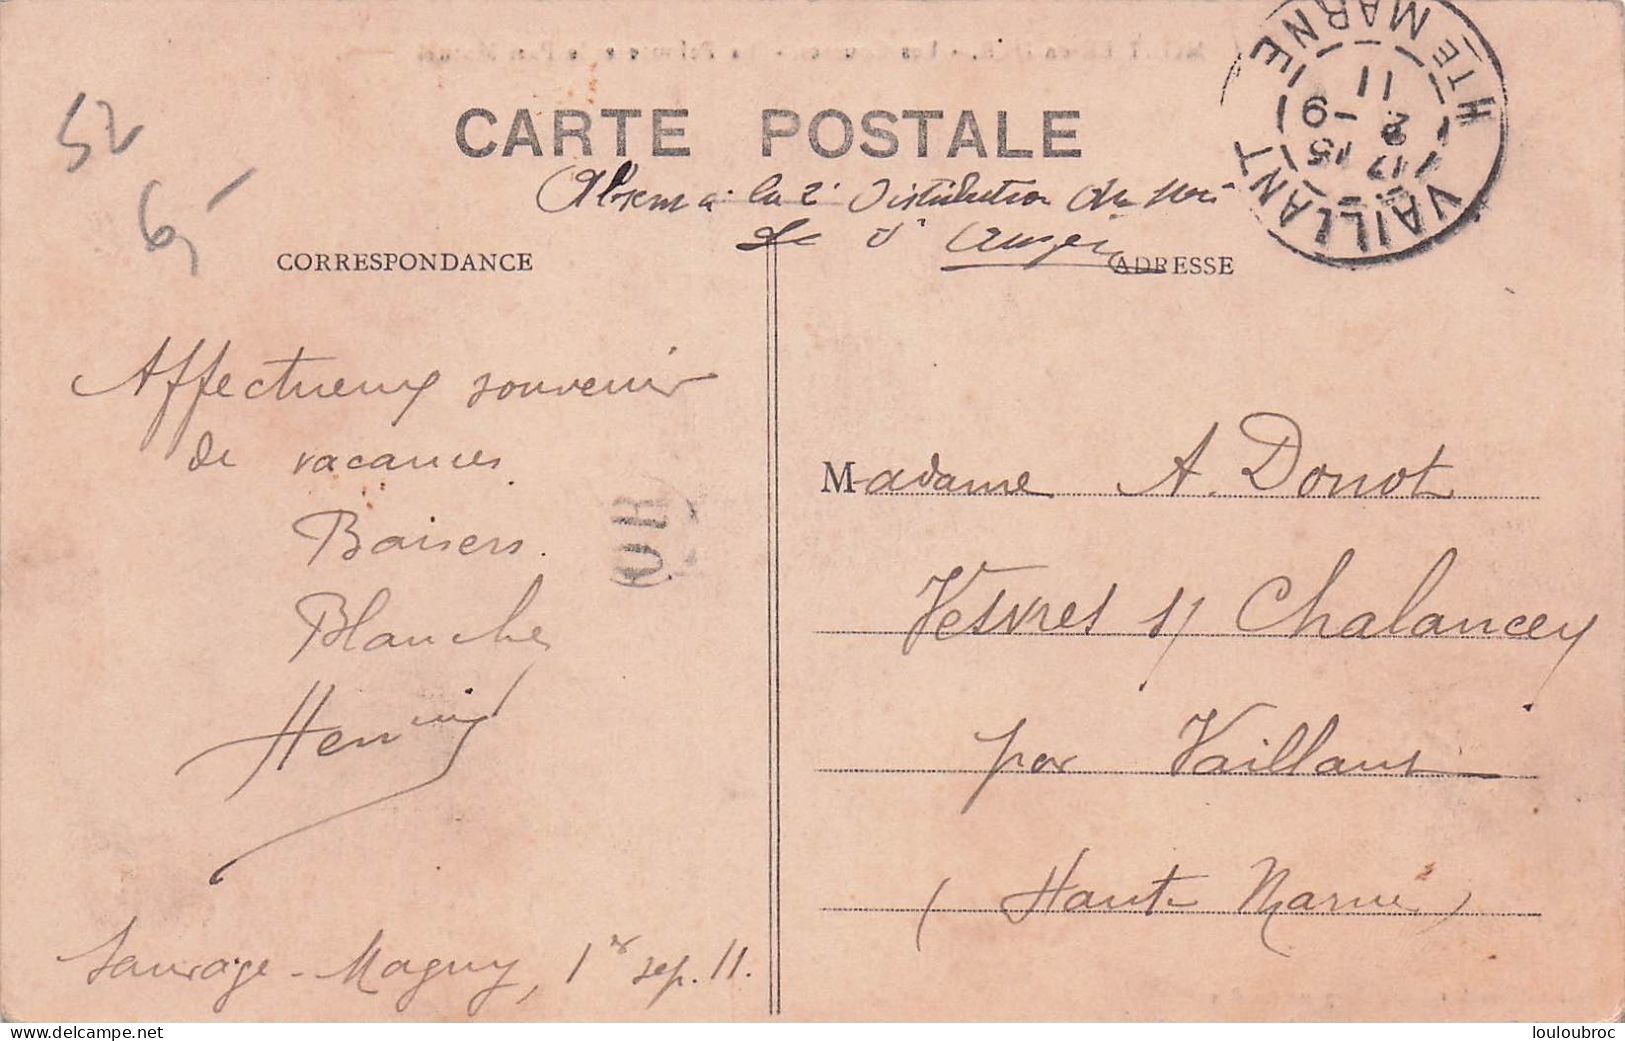 CARTE POSTALE
Absent à la 2e Distribution du
CORRESPONDANCE
ADRESSE
HTE MARNE
VAILLANT
17 15
2 -9
11
52
6,-
Affectueux souvenir
de vacances
Baisers.
Blanche
Henri
Sauvage-Magny, 1er sep. 11.
OR
Madame A. Donot
Vesvres s/ Chalancey
par Vaillant
(Haute Marne)
louloubroc